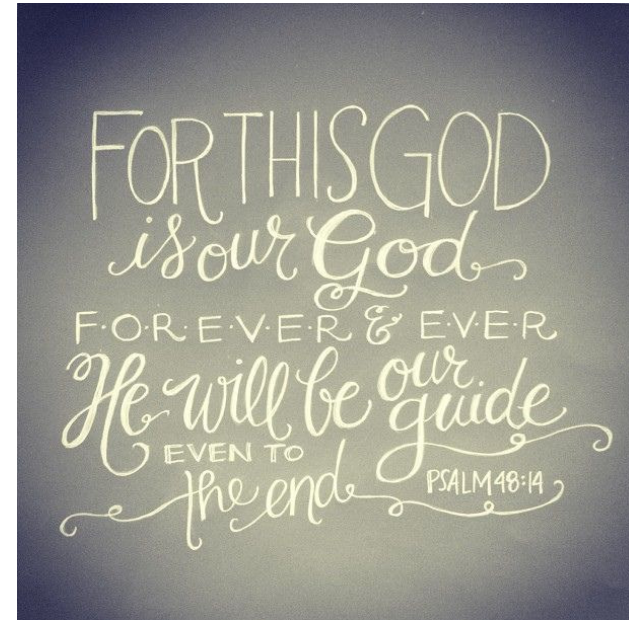 FOR THIS GOD
is our God
F·O·R·E·V·E·R & E·V·E·R
He will be our guide
EVEN TO
the end
PSALM 48:14